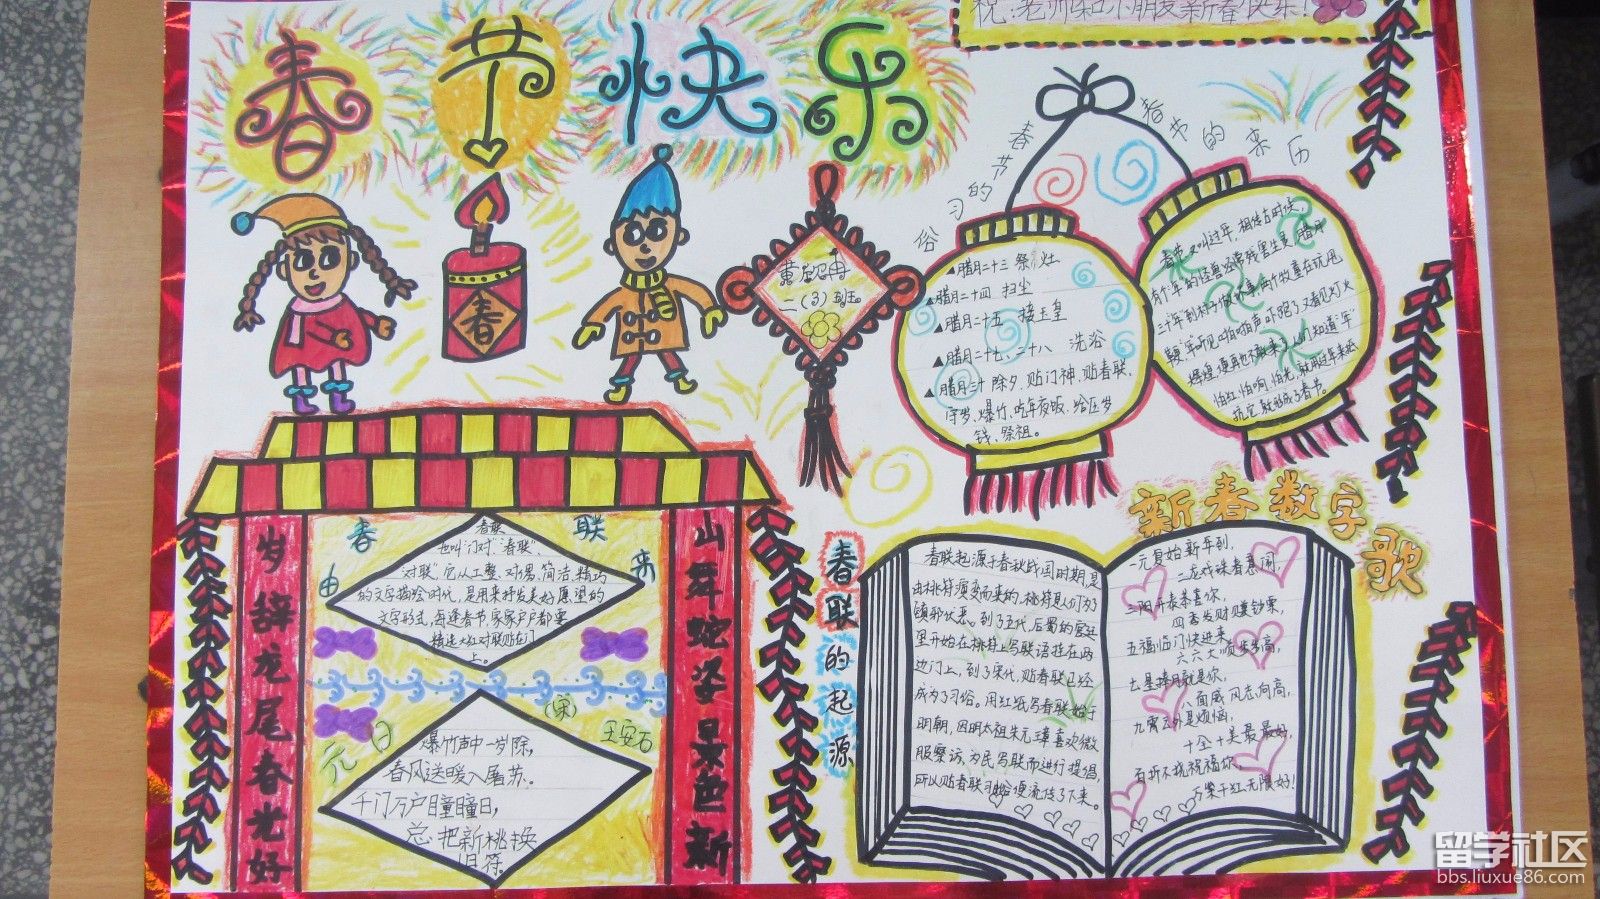 祝:老师和小朋友新春快乐!
春节快乐
春节的习俗
▲腊月二十三 祭灶
▲腊月二十四 扫尘
▲腊月二十五 接玉皇
▲腊月二十七、二十八 洗浴
▲腊月三十 除夕、贴门神、贴春联、
守岁、爆竹、吃年夜饭、给压岁
钱、祭祖。
春节的来历
春节又叫过年,相传古时候,
有个年的怪兽经常残害生灵,腊月
三十年到村子
听见啪啪声吓跑了又看见灯火
辉煌,便再也不敢来了人们知道"年"
怕红、怕响、怕光,就用过年来
春
二(3)班。
岁辞龙尾春光好
山舞蛇姿景色新
春联由来
春联
也叫"门对""春联"、
"对联",它以工整、对偶、简洁、精巧
的文字描绘时代,是用来抒发美好愿望的
文字形式,每逢春节,家家户户都要
精选大红对联贴在门
上。
元日
(宋)
王安石
爆竹声中一岁除,
春风送暖入屠苏。
千门万户曈曈日,
总把新桃换
旧符。
春联的起源
春联起源于春秋战国时期,是
由桃符演变而来的,桃符是人们为了
镇邪伏恶。到了五代,后蜀的宫廷
里开始在桃符上写联语挂在两
边门上,到了宋代,贴春联已经
成为了习俗。用红纸写春联始于
明朝,因明太祖朱元璋喜欢微
服察访,为民写联而进行提倡,
所以贴春联习俗便流传了下来。
新春数字歌
一元复始新年到,
二龙戏珠春意闹,
三阳开泰恭喜你,
四季发财赚钞票,
五福临门快进来,
六六大顺步步高,
七星捧月就是你,
八面威风志向高,
九霄云外是烦恼,
十全十美最最好,
百折不挠祝福你,
万紫千红无限好!
留学社区
bbs.liuxue86.com